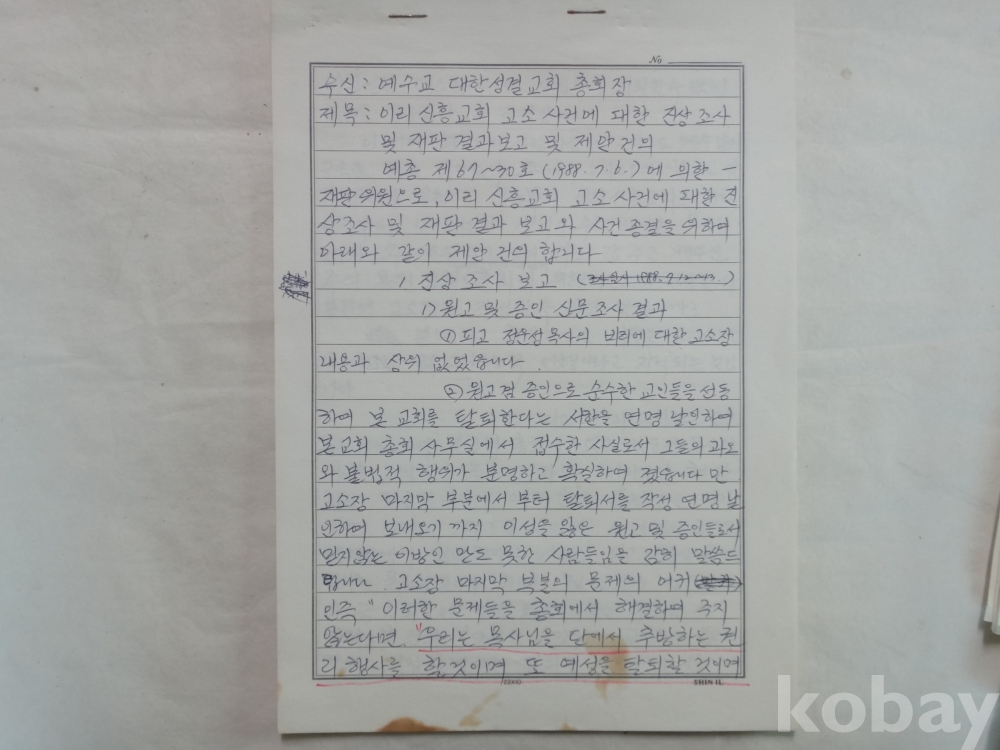 No
수신: 예수교 대한성결교회 총회장
제목: 이리 신흥교회 고소 사건에 대한 진상조사
및 재판 결과보고 및 제안건의
예총 제67~30호 (1988. 7. 6.)에 의한 -
재판위원으로, 이리 신흥교회 고소 사건에 대한 진
상조사 및 재판 결과 보고와 사건종결을 위하여
아래와 같이 제안 건의 합니다
1 진상 조사 보고
1) 원고 및 증인 신문조사 결과
① 피고 목사의 비리에 대한 고소장
내용과 상위 없었읍니다.
② 원고겸 증인으로 순수한 교인들을 선동
하여 본 교회를 탈퇴한다는 서한을 연명 날인하여
본교회 총회 사무실에서 접수한 사실로서 그들의 과오
와 불법적 행위가 분명하고 확실하여 졌읍니다 만
고소장 마지막 부분에서 부터 탈퇴서를 작성 연명 날
인하여 보내오기 까지 이성을 잃은 원고 및 증인들로서
믿지않는 이방인 만도 못한 사람들임을 감히 말씀드
립니다. 고소장 마지막 부분의 문제의 어귀
인즉 "이러한 문제들을 총회에서 해결하여 주지
않는다면, "우리는 목사님을 단에서 추방하는 권
리 행사를 할것이며 또 예성을 탈퇴할 것이며
SHIN IL
kobay